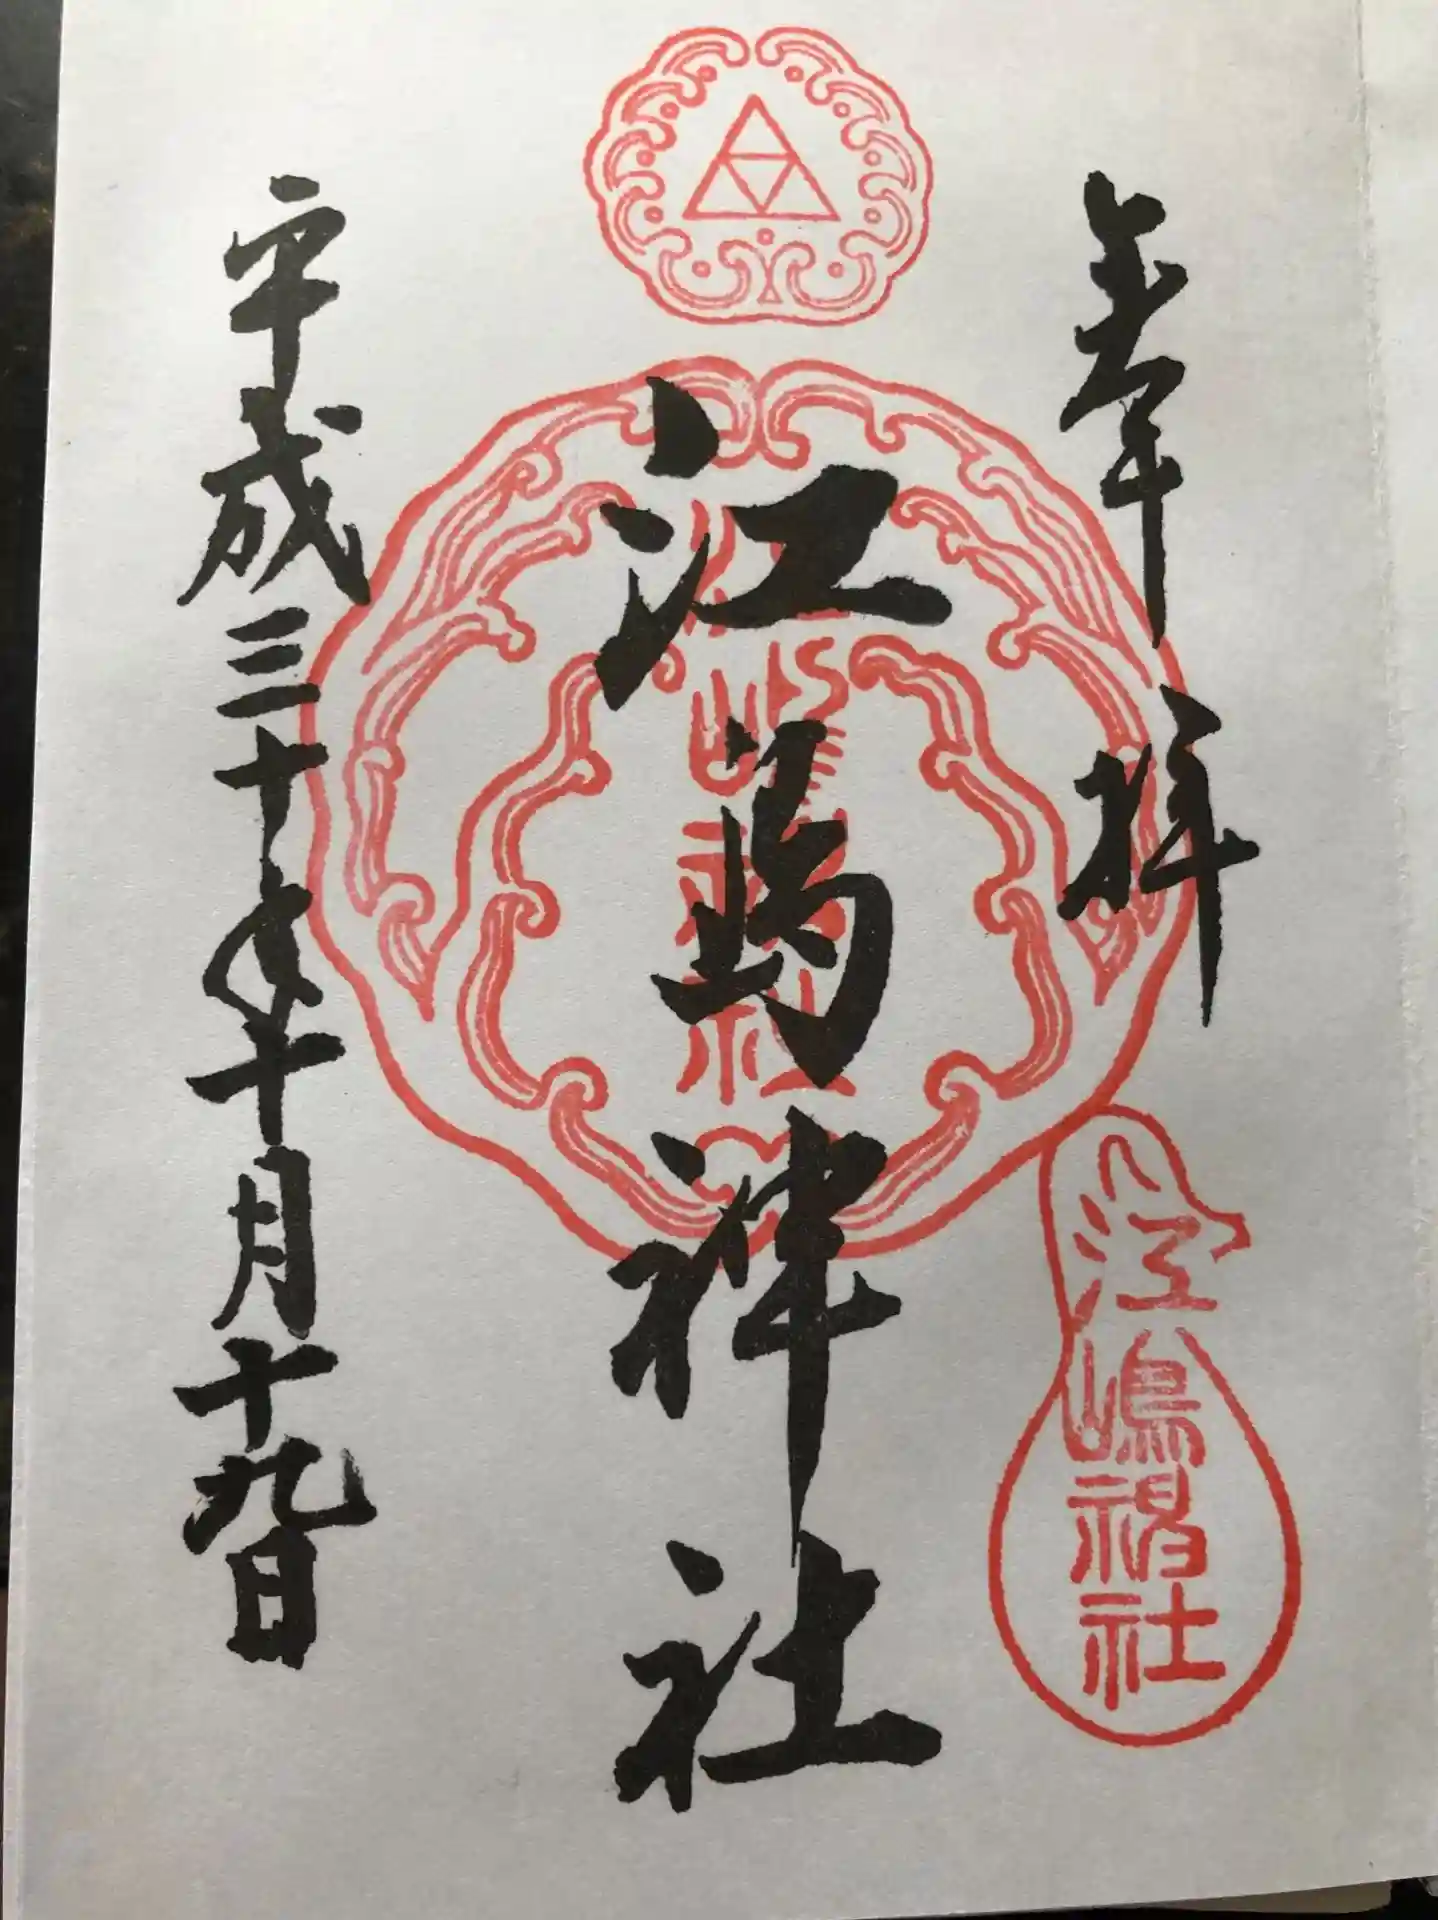 奉拝
江嶋神社
江島神社
平成三十年十月十九日
江嶋神社